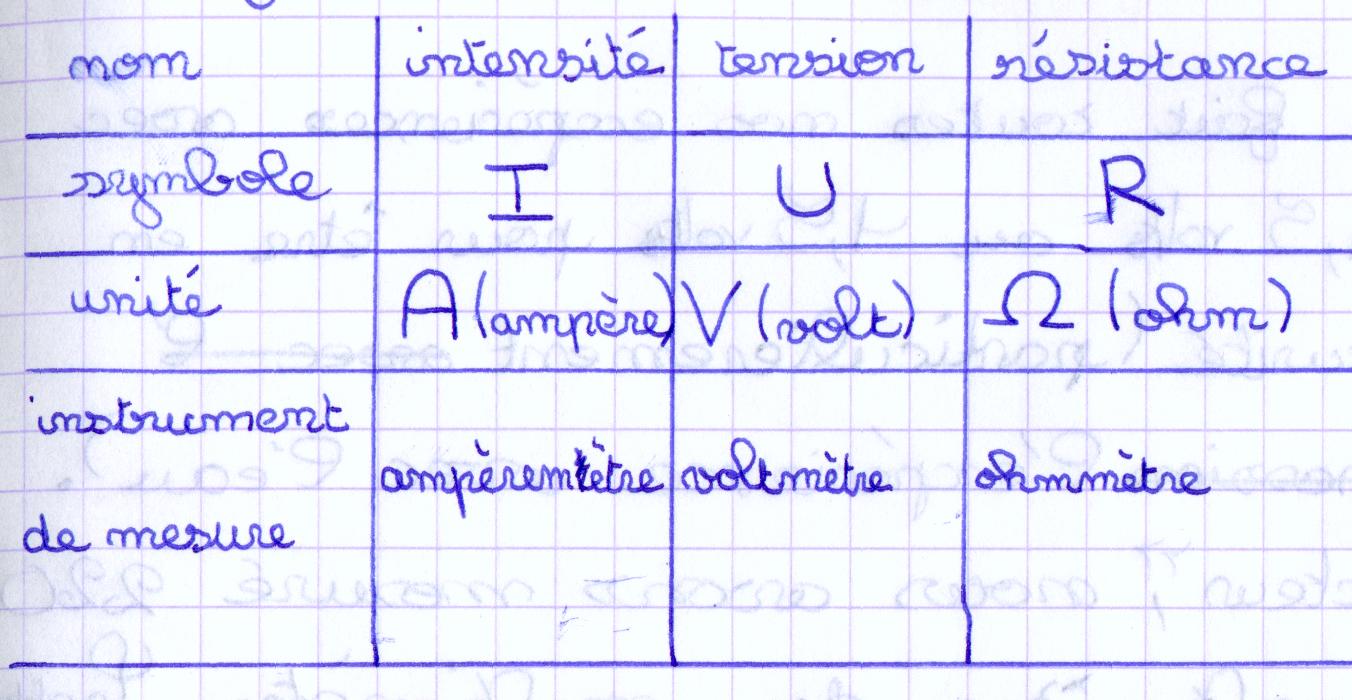 nom intensité tension résistance
symbole I U R
unité A (ampère) V (volt) Ω (ohm)
instrument
ampèremètre voltmètre ohmmètre
de mesure